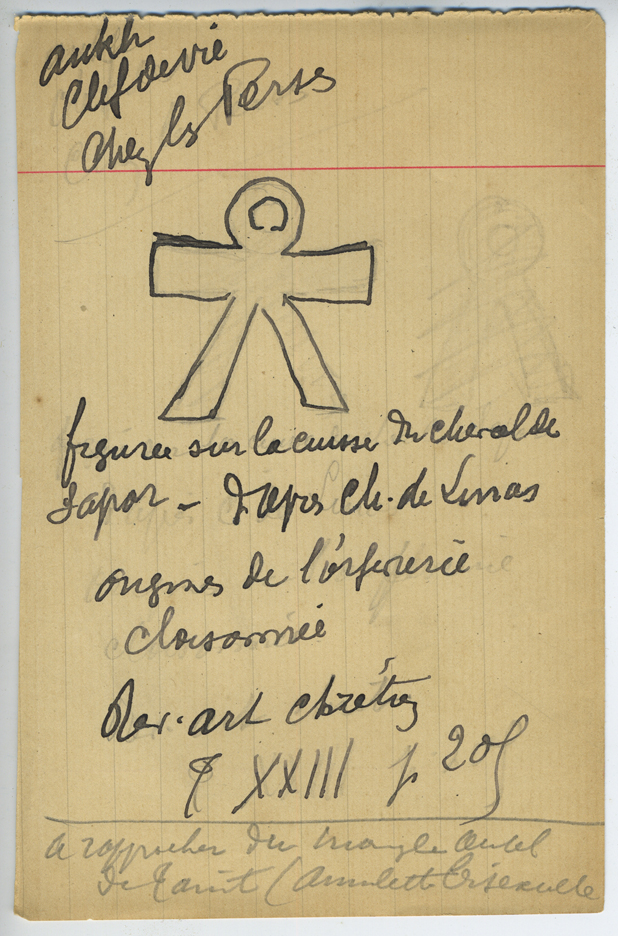 ankh
Clef de vie
chez les Perses
figurée sur la cuisse du cheval de
Sapor - d'après Ch. de Linas
origines de l'orfevrerie
cloisonnée
Rev. art chrétien
T XXIII p 205
a rapprocher du triangle autel
de Tanit (amulette bisexuelle